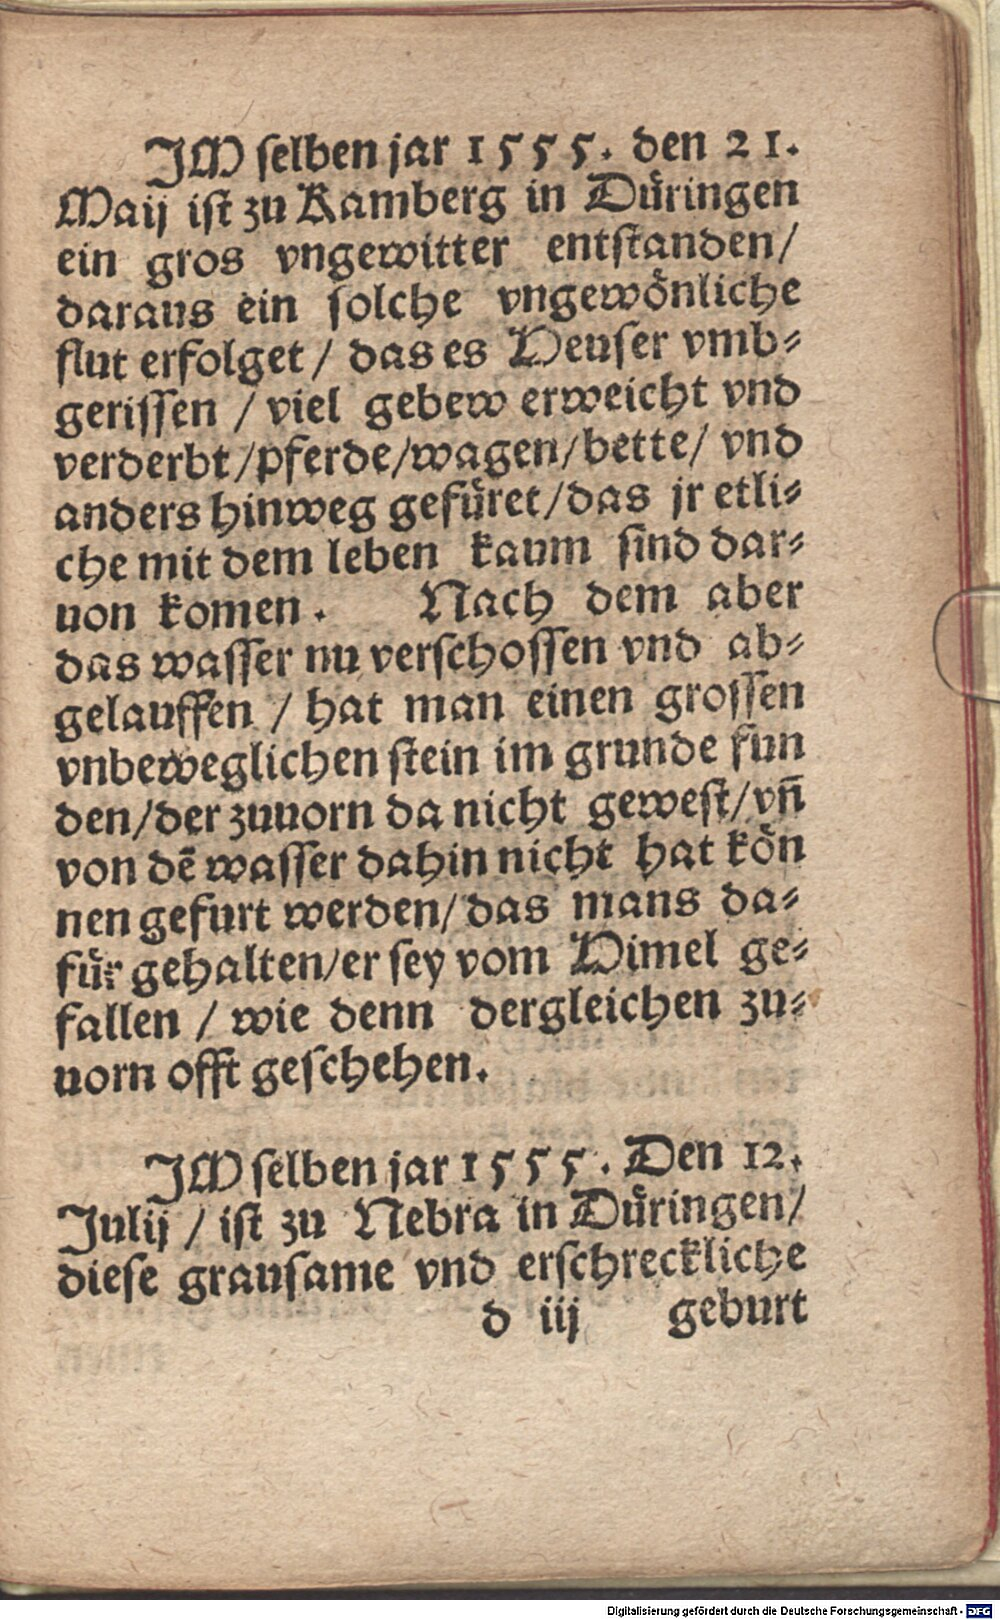 JM selben jar 1555. den 21.
Maij ist zu Kamberg in Düringen
ein gros vngewitter entstanden/
daraus ein solche vngewönliche
flut erfolget / das es Heuser vmb⸗
gerissen / viel gebew erweicht vnd
verderbt/pferde/wagen/bette/ vnd
anders hinweg gefüret/das jr etli⸗
che mit dem leben kaum sind dar⸗
uon komen. Nach dem aber
das wasser nu verschossen vnd ab⸗
gelauffen / hat man einen grossen
vnbeweglichen stein im grunde fun
den/der zuuorn da nicht gewest/vñ
von dē wasser dahin nicht hat kön
nen gefurt werden/das mans da⸗
für gehalten/er sey vom Himel ge⸗
fallen / wie denn dergleichen zu⸗
uorn offt geschehen.
JM selben jar 1555. Den 12.
Julij / ist zu Nebra in Düringen/
diese grausame vnd erschreckliche
d iij geburt
Digitalisierung gefördert durch die Deutsche Forschungsgemeinschaft - DFG